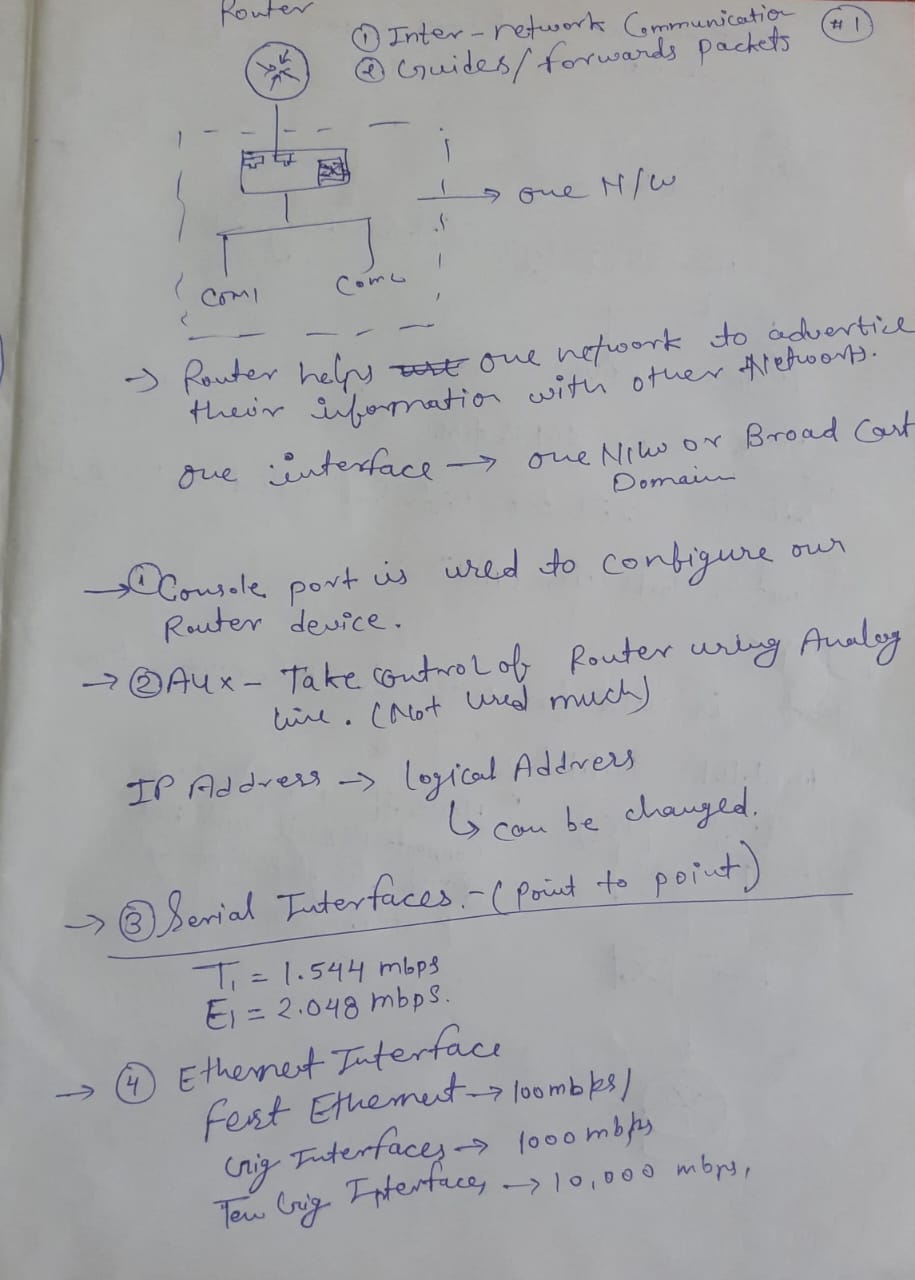 Router
① Inter-network Communication
#1
② Guides/forwards packets
one N/W
COM1
Com2
→ Router helps one network to advertice
their information with other Networks.
one interface → one N/w or Broad Cast
Domain
→ ① Console port is used to configure our
Router device.
→ ② Aux - Take control of Router using Analog
line. (Not used much)
IP Address → Logical Address
↳ can be changed.
→ ③ Serial Interfaces. - (Point to point)
T1 = 1.544 mbps
E1 = 2.048 mbps.
→ ④ Ethernet Interface
Fast Ethernet → 100mbps/
Gig Interfaces → 1000 mbps
Ten Gig Interfaces → 10,000 mbps,